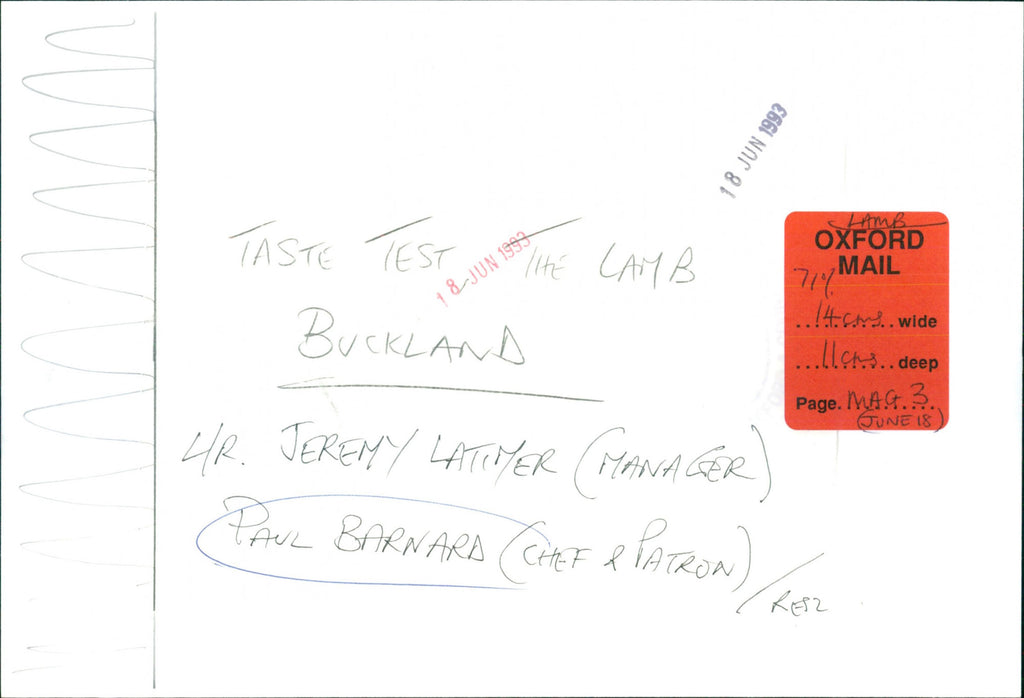 18 JUN 1993
TASTE TEST THE LAMB
18 JUN 1993
BUCKLAND
L/R. JEREMY LATIMER (MANAGER)
PAUL BARNARD (CHEF & PATRON)
LAMB
OXFORD
MAIL
71%
14cms wide
11cms deep
Page. MAG 3
(JUNE 18)